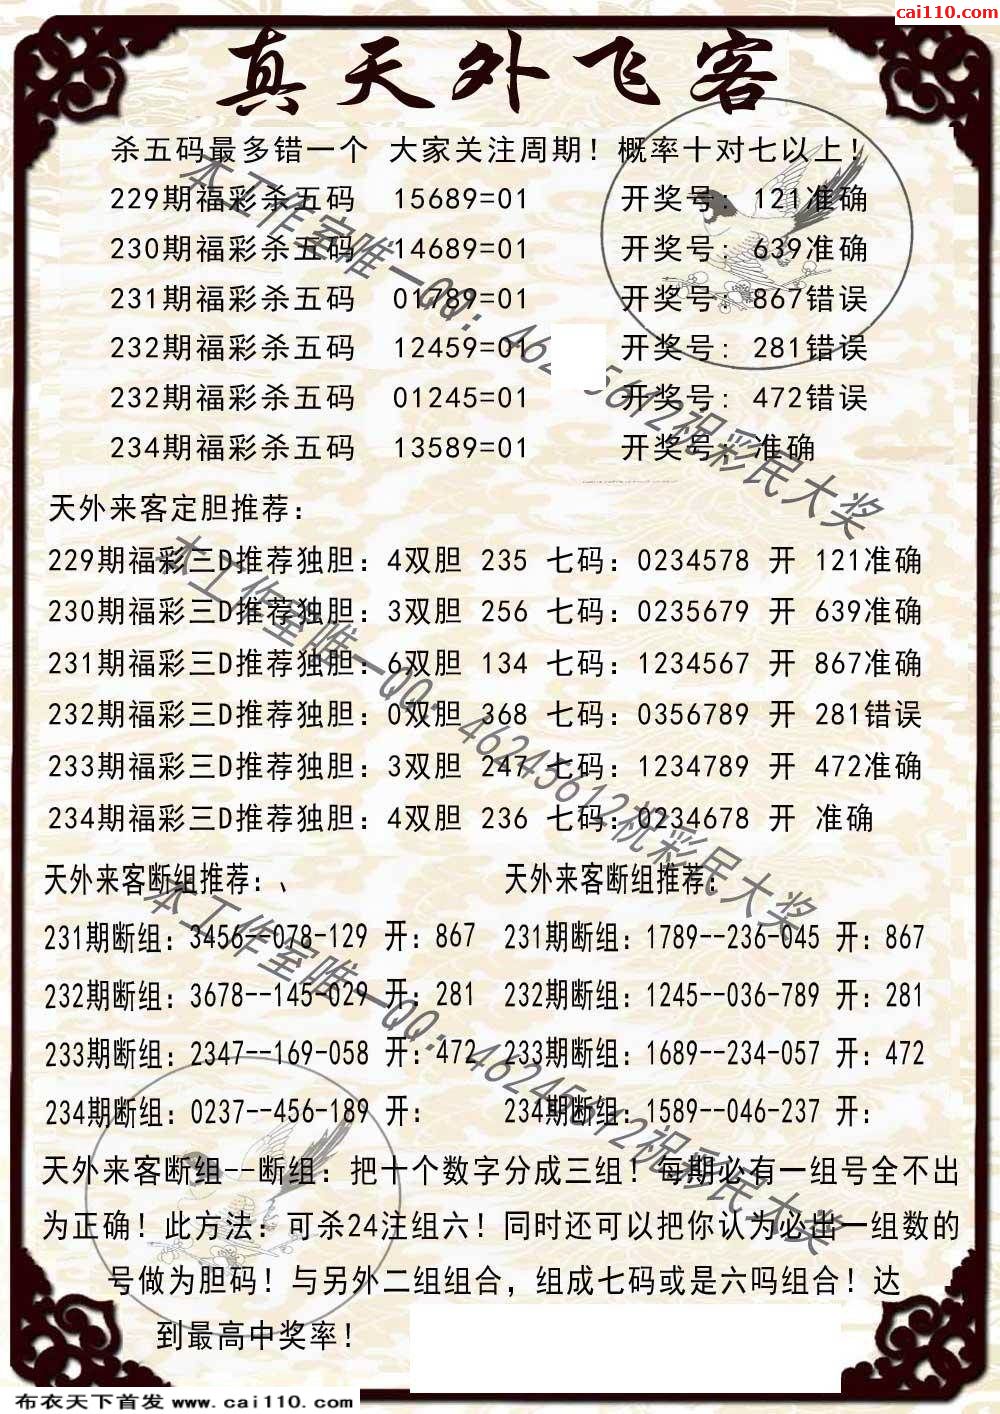 cai110.com
真天外飞客
杀五码最多错一个 大家关注周期！概率十对七以上！
229期福彩杀五码 15689=01 开奖号：121准确
230期福彩杀五码 14689=01 开奖号：639准确
231期福彩杀五码 01789=01 开奖号：867错误
232期福彩杀五码 12459=01 开奖号：281错误
232期福彩杀五码 01245=01 开奖号：472错误
234期福彩杀五码 13589=01 开奖号：准确
天外来客定胆推荐：
229期福彩三D推荐独胆：4双胆 235 七码：0234578 开 121准确
230期福彩三D推荐独胆：3双胆 256 七码：0235679 开 639准确
231期福彩三D推荐独胆：6双胆 134 七码：1234567 开 867准确
232期福彩三D推荐独胆：0双胆 368 七码：0356789 开 281错误
233期福彩三D推荐独胆：3双胆 247 七码：1234789 开 472准确
234期福彩三D推荐独胆：4双胆 236 七码：0234678 开 准确
天外来客断组推荐：、 天外来客断组推荐：
231期断组：3456--078-129 开：867 231期断组：1789--236-045 开：867
232期断组：3678--145-029 开：281 232期断组：1245--036-789 开：281
233期断组：2347--169-058 开：472 233期断组：1689--234-057 开：472
234期断组：0237--456-189 开： 234期断组：1589--046-237 开：
天外来客断组--断组：把十个数字分成三组！每期必有一组号全不出
为正确！此方法：可杀24注组六！同时还可以把你认为必出一组数的
号做为胆码！与另外二组组合，组成七码或是六吗组合！达
到最高中奖率！
本工作室唯一QQ：46245612祝彩民大奖
本工作室唯一QQ：46245612祝彩民大奖
本工作室唯一QQ：46245612祝彩民大奖
布衣天下首发 www.cai110.com